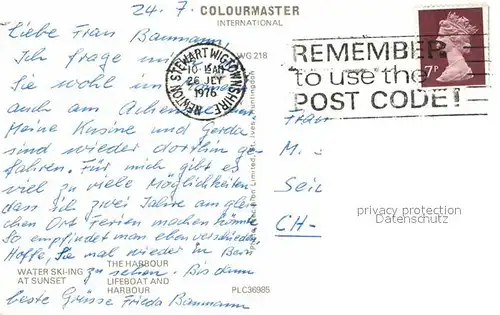 24. 7. COLOURMASTER
INTERNATIONAL
Liebe Frau Baumann,
Ich frage mich
WG 218
Sie wohl im
auch am
Meine Kusine und Gerda
sind wieder dorthin ge-
fahren. Für mich gibt es
viel zu viele Möglichkeiten
dass ich zwei Jahre am glei-
chen Ort Ferien machen könnte.
So empfindet man eben verschieden
Hoffe, Sie mal wieder in Bern
zu sehen. Bis dann
beste Grüsse Frieda Baumann
WATER SKI-ING
AT SUNSET
THE HARBOUR
LIFEBOAT AND
HARBOUR
PLC36985
NEWTON STEWART WIGTOWNSHIRE
10-15AM
26 JLY
1976
REMEMBER
to use the
POST CODE!
7P
Frau
M.
Seil
CH-
privacy protection
Datenschutz